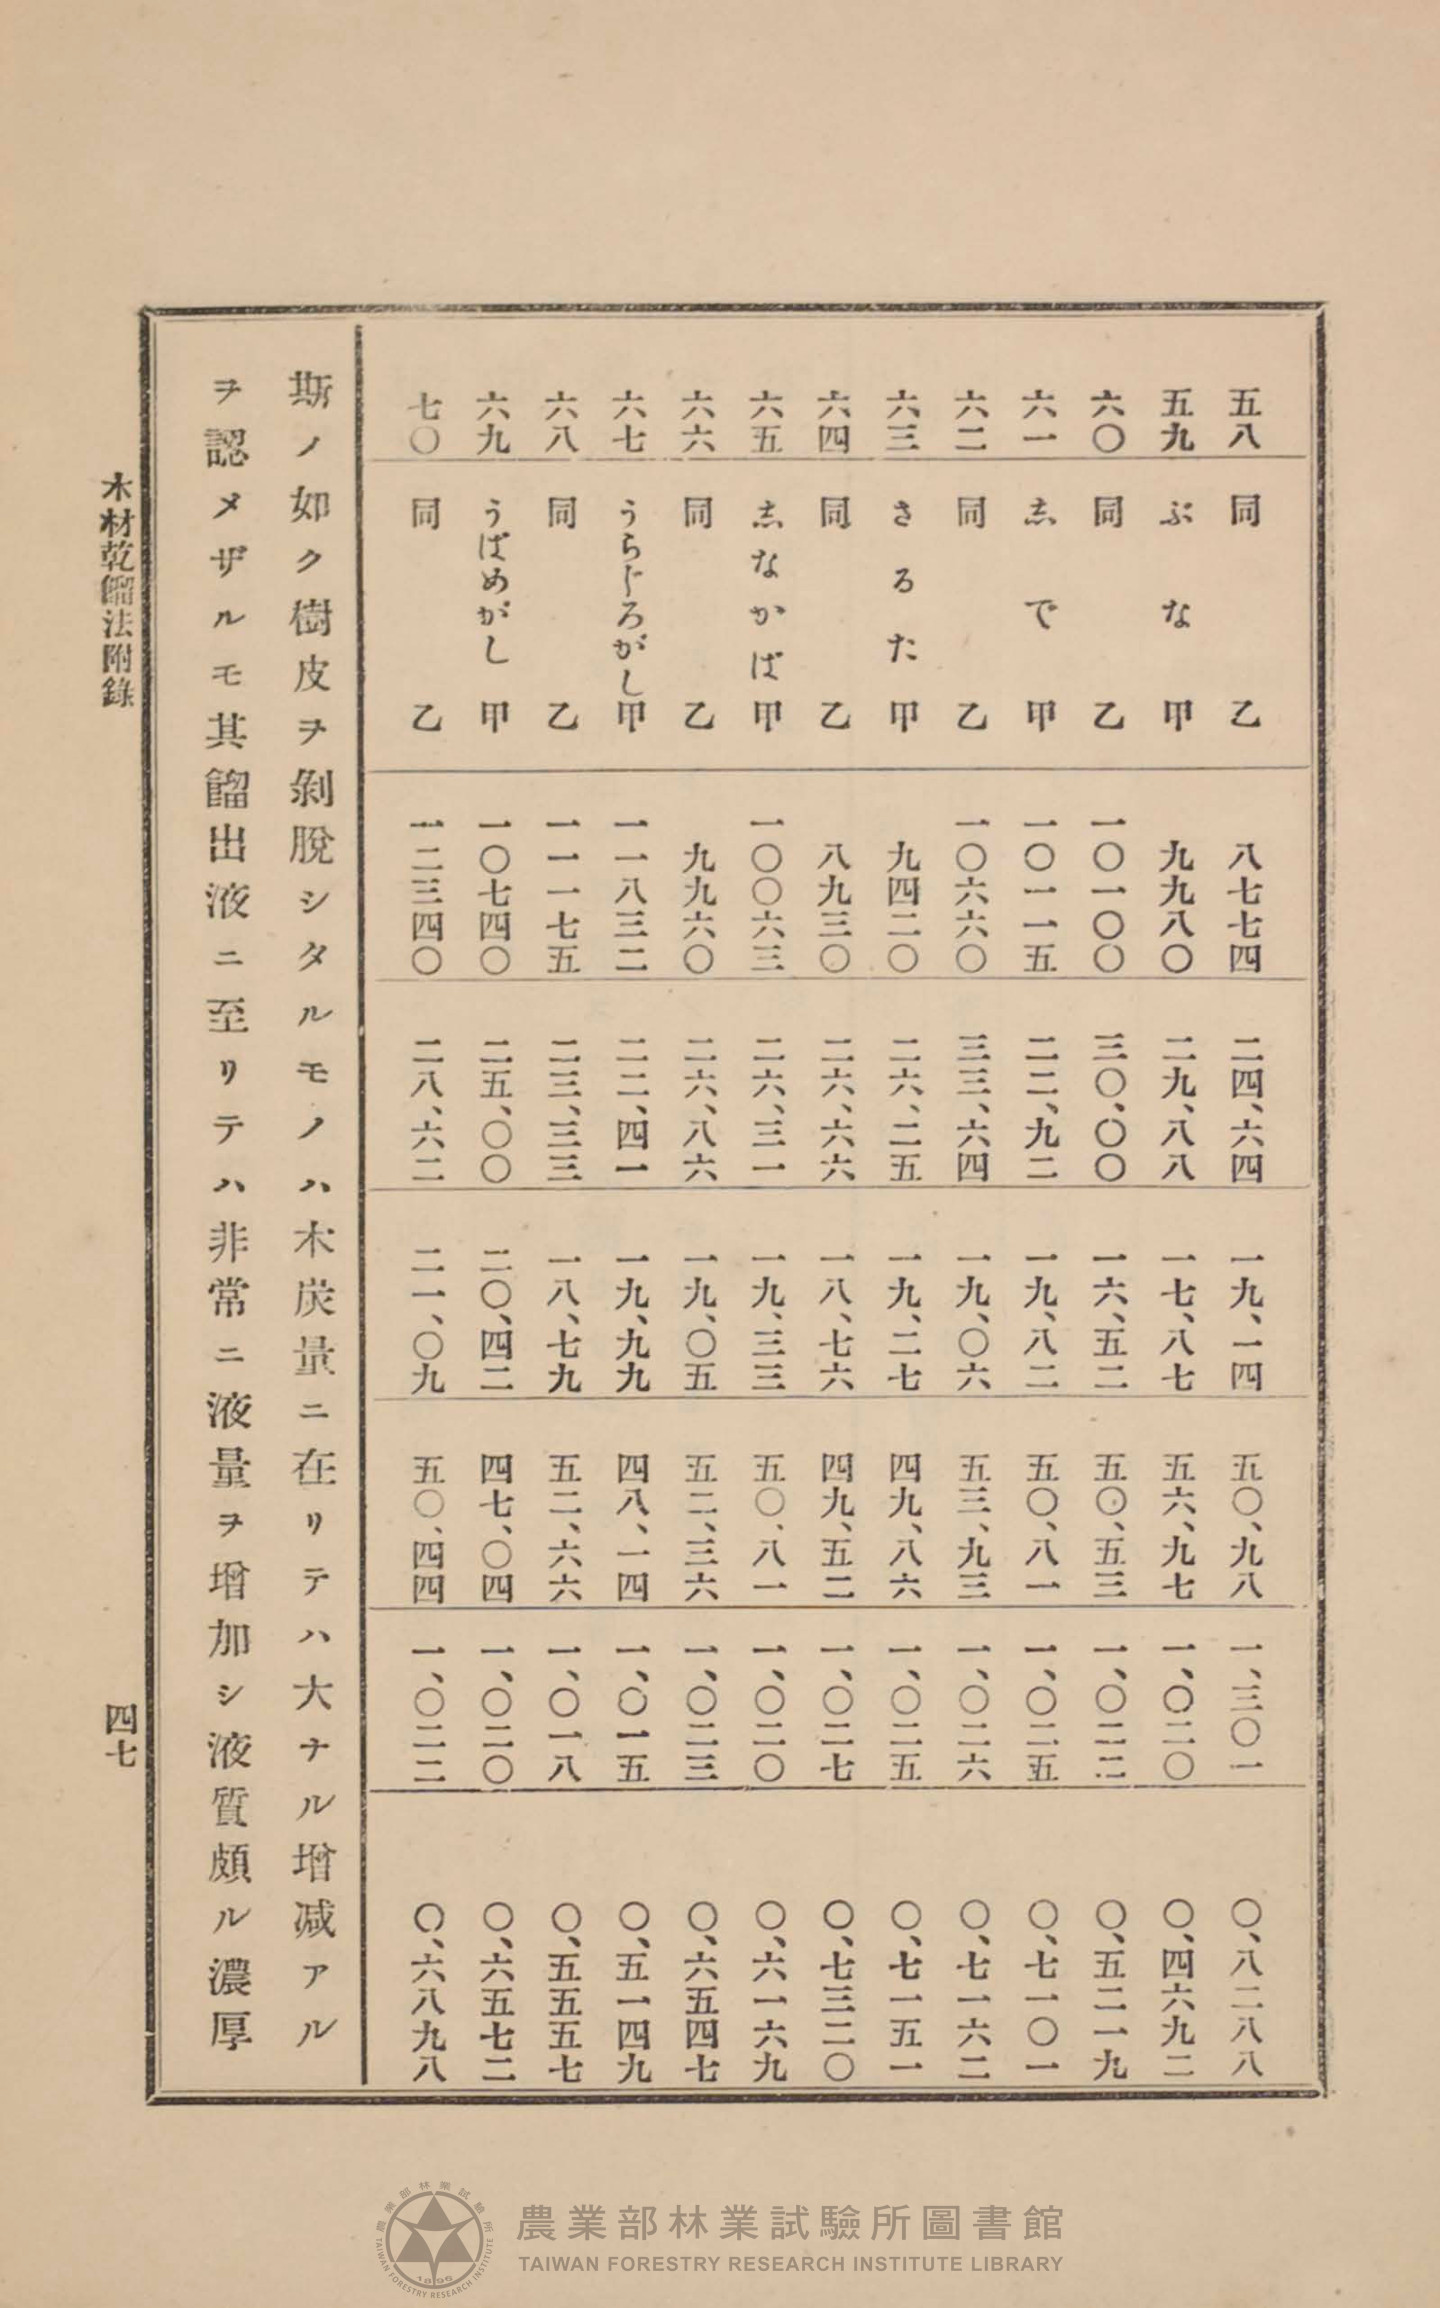 五八 同 乙 八七七四 二四、六四 一九、一四 五〇、九八 一、三〇一 〇、八二八八
五九 ぶな 甲 九九八〇 二九、八八 一七、八七 五六、九七 一、〇二〇 〇、四六九二
六〇 同 乙 一〇一〇〇 三〇、〇〇 一六、五二 五〇、五三 一、〇二二 〇、五二一九
六一 志で 甲 一〇一一五 二二、九二 一九、八二 五〇、八一 一、〇二五 〇、七一〇一
六二 同 乙 一〇六六〇 三三、六四 一九、〇六 五三、九三 一、〇二六 〇、七一六二
六三 さるた 甲 九四二〇 二六、二五 一九、二七 四九、八六 一、〇二五 〇、七一五一
六四 同 乙 八九三〇 二六、六六 一八、七六 四九、五二 一、〇二七 〇、七三二〇
六五 志なかば 甲 一〇〇六三 二六、三一 一九、三三 五〇、八一 一、〇二〇 〇、六一六九
六六 同 乙 九九六〇 二六、八六 一九、〇五 五二、三六 一、〇二三 〇、六五四七
六七 うらじろがし 甲 一一八三二 二二、四一 一九、九九 四八、一四 一、〇一五 〇、五一四九
六八 同 乙 一一一七五 二三、三三 一八、七九 五二、六六 一、〇一八 〇、五五五七
六九 うばめがし 甲 一〇七四〇 二五、〇〇 二〇、四二 四七、〇四 一、〇二〇 〇、六五七二
七〇 同 乙 一二三四〇 二八、六二 二一、〇九 五〇、四四 一、〇二二 〇、六八九八
斯ノ如ク樹皮ヲ剝脫シタルモノハ木炭量ニ在リテハ大ナル增減アル
ヲ認メザルモ其餾出液ニ至リテハ非常ニ液量ヲ增加シ液質頗ル濃厚
木材乾餾法附錄
四七
農業部林業試驗所圖書館
TAIWAN FORESTRY RESEARCH INSTITUTE LIBRARY
農業部林業試驗所
TAIWAN FORESTRY RESEARCH INSTITUTE
1896